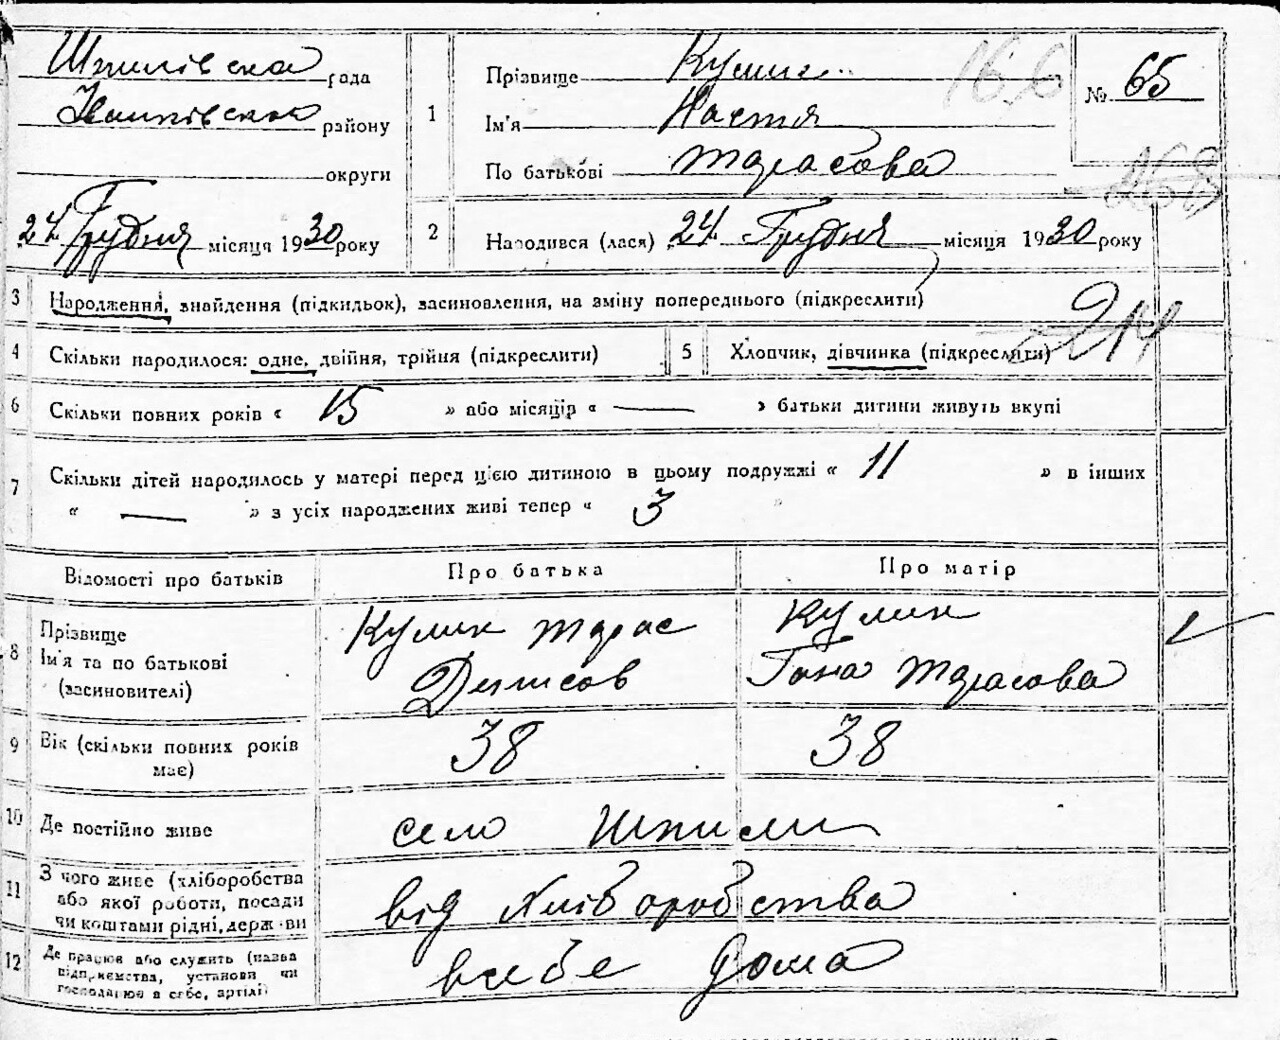 Шпилівска рада
Іванківска району
округи
24 Грудня місяця 1930 року
1
Прізвище Кулик
Ім'я Настя
По батькові Тарасова
16.6
№ 65
2
Народився (лася) 24 Грудня місяця 1930 року
3 Народження, знайдення (підкидьок), засиновлення, на зміну попереднього (підкреслити)
214
4 Скільки народилося: одне, двійня, трійня (підкреслити)
5 Хлопчик, дівчинка (підкреслити)
6 Скільки повних років « 15 » або місяцір « — » батьки дитини живуть вкупі
7 Скільки дітей народилось у матері перед цією дитиною в цьому подружжі « 11 » в інших
« — » з усіх народжених живі тепер « 3
Відомості про батьків
Про батька
Про матір
8 Прізвище
Ім'я та по батькові
(засиновителі)
Кулик Тарас
Денисов
Кулик
Гана Тарасова
9 Вік (скільки повних років
має)
38
38
10 Де постійно живе
село Шпили
11 З чого живе (хліборобства
або якої роботи, посади
чи коштами рідні, держави
від хліборобства
12 Де працює або служить (назва
підприємства, установи чи
господарює в себе, артілі)
в себе дома